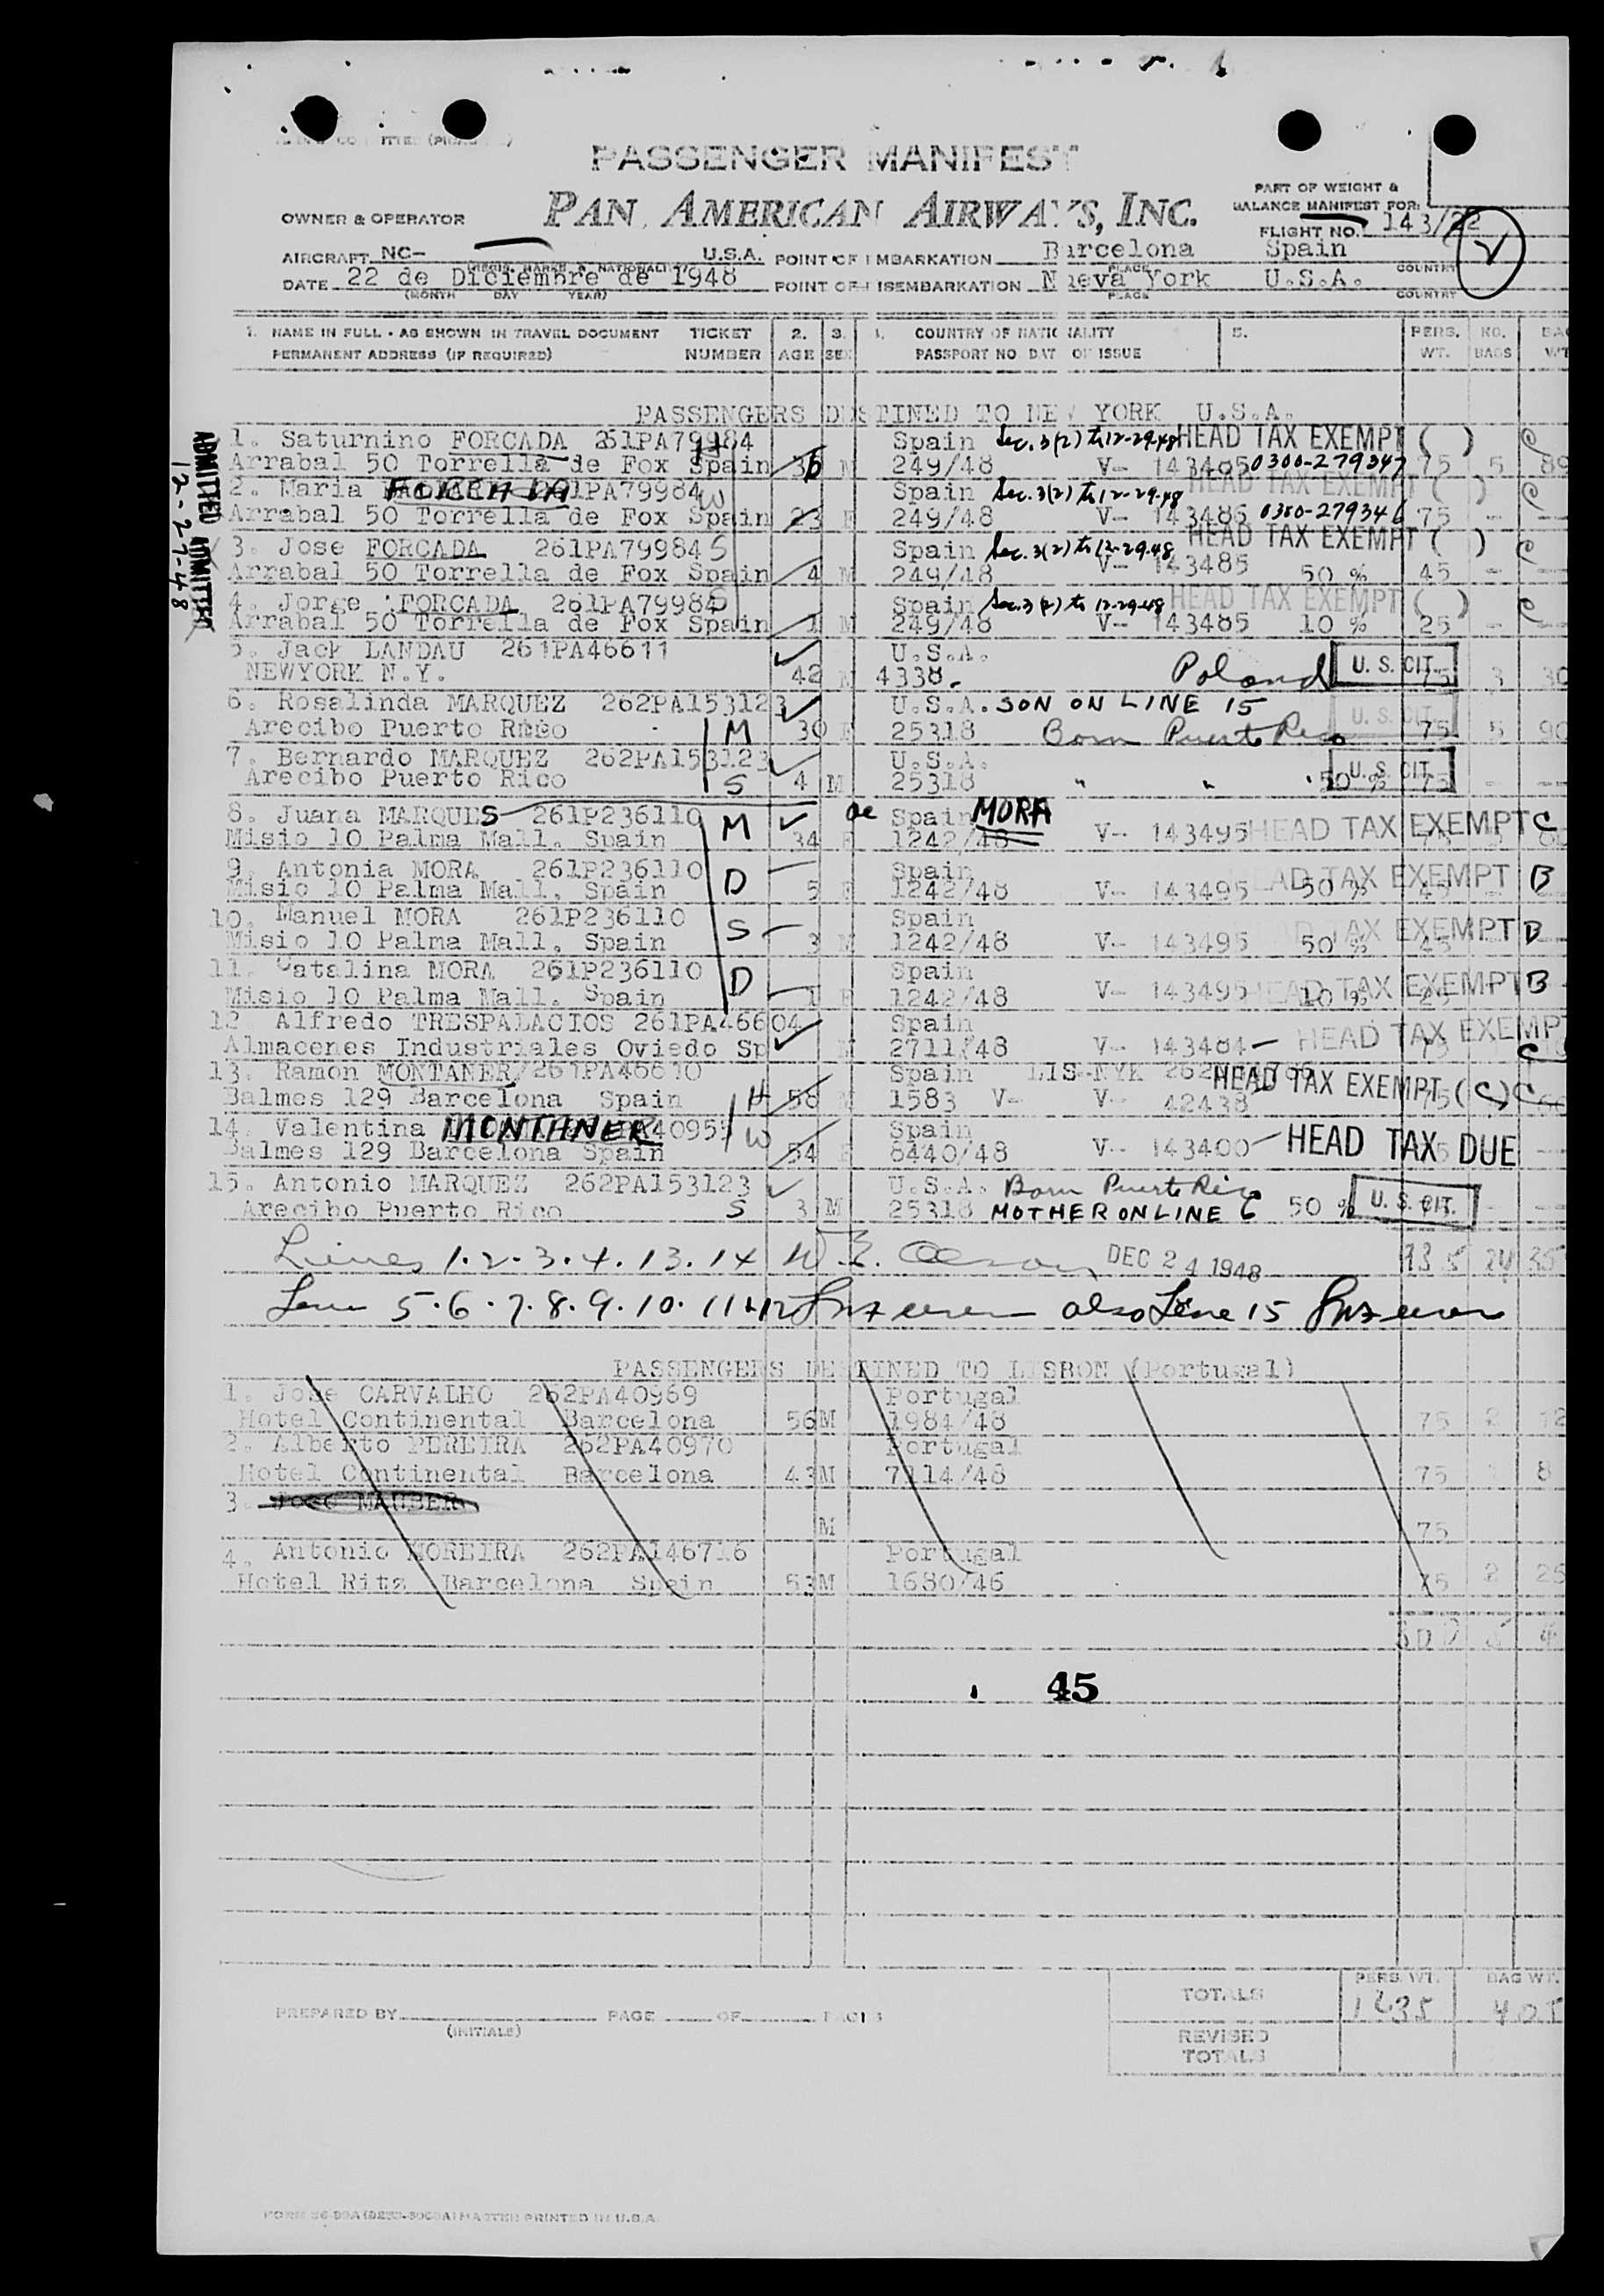 PASSENGER MANIFEST
PAN AMERICAN AIRWAYS, INC.
PART OF WEIGHT &
BALANCE MANIFEST FOR:
OWNER & OPERATOR
FLIGHT NO. 143/22
AIRCRAFT NC- U.S.A. POINT OF EMBARKATION Barcelona Spain
DATE 22 de Diciembre de 1948 POINT OF DISEMBARKATION Nueva York U.S.A.
(MONTH DAY YEAR) PLACE COUNTRY
1. NAME IN FULL - AS SHOWN IN TRAVEL DOCUMENT TICKET 2. 3. 4. COUNTRY OF NATIONALITY 5. PERS. NO. BAG
PERMANENT ADDRESS (IF REQUIRED) NUMBER AGE SEX PASSPORT NO DATE OF ISSUE WT. BAGS WT
PASSENGERS DESTINED TO NEW YORK U.S.A.
1. Saturnino FORCADA 261PA79984 H Spain Sec. 3(2) to 12-29-48 HEAD TAX EXEMPT ( ) C
Arrabal 50 Torrella de Fox Spain 36 M 249/48 V- 143485 0300-279347 75 5 89
2. Maria FORCADA 1PA79984 W Spain Sec. 3(2) to 12-29-48 HEAD TAX EXEMPT ( ) C
Arrabal 50 Torrella de Fox Spain 23 F 249/48 V- 143486 0300-279346 75 - --
3. Jose FORCADA 261PA79984 S Spain Sec. 3(2) to 12-29-48 HEAD TAX EXEMPT ( ) C
Arrabal 50 Torrella de Fox Spain 4 M 249/48 V- 143485 50 % 45 - --
4. Jorge FORCADA 261PA79984 S Spain Sec. 3(2) to 12-29-48 HEAD TAX EXEMPT ( ) C
Arrabal 50 Torrella de Fox Spain 1 M 249/48 V- 143485 10 % 25 - --
ADMITTED
12-27-48
5. Jack LANDAU 261PA46611 U.S.A.
NEWYORK N.Y. 42 M 4338. Poland U. S. CIT. 75 3 30
6. Rosalinda MARQUEZ 262PA153123 U.S.A. SON ON LINE 15
Arecibo Puerto Rico M 30 F 25318 Born Puerto Rico U. S. CIT. 75 5 90
7. Bernardo MARQUEZ 262PA153123 U.S.A.
Arecibo Puerto Rico S 4 M 25318 " " 50 % U. S. CIT. - --
8. Juana MARQUES 261P236110 M de Spain MORA
Misio 10 Palma Mall. Spain 34 F 1242/48 V- 143495 HEAD TAX EXEMPT C
9. Antonia MORA 261P236110 D Spain
Misio 10 Palma Mall, Spain 5 F 1242/48 V- 143495 50 % HEAD TAX EXEMPT B
10. Manuel MORA 261P236110 S Spain
Misio 10 Palma Mall, Spain 3 M 1242/48 V- 143495 50 % TAX EXEMPT B
11. Catalina MORA 261P236110 D Spain
Misio 10 Palma Mall. Spain 1 F 1242/48 V- 143495 10 % HEAD TAX EXEMPT B
12 Alfredo TRESPALACIOS 261PA46604 Spain
Almacenes Industriales Oviedo Sp M 2711/48 V- 143484 HEAD TAX EXEMPT C
13. Ramon MONTANER/261PA46610 Spain LIS-NYK
Balmes 129 Barcelona Spain H 58 M 1583 V- V- 42438 HEAD TAX EXEMPT (C) C
14. Valentina MONTANER A40955 W Spain
Balmes 129 Barcelona Spain 54 F 8440/48 V- 143400 HEAD TAX DUE
15. Antonio MARQUEZ 262PA153123 U.S.A. Born Puerto Rico
Arecibo Puerto Rico S 3 M 25318 MOTHER ON LINE 6 50 % U. S. CIT. - --
Lines 1.2.3.4.13.14 DEC 24 1948 24 35
Line 5.6.7.8.9.10.11 & 12 also Line 15
PASSENGERS DESTINED TO LISBON (Portugal)
1. Jose CARVALHO 262PA40969 Portugal
Hotel Continental Barcelona 56 M 1984/48 75 2 12
2. Alberto PEREIRA 262PA40970 Portugal
Hotel Continental Barcelona 43 M 7114/48 75 8
3. Jose MAUBER
M 75
4. Antonio MOREIRA 262PA146716 Portugal
Hotel Ritz Barcelona Spain 53 M 1680/46 75 2 25
45
TOTALS PERS. WT. 1235 BAG WT. 405
PREPARED BY (INITIALS) PAGE OF PAGES
REVISED
TOTALS